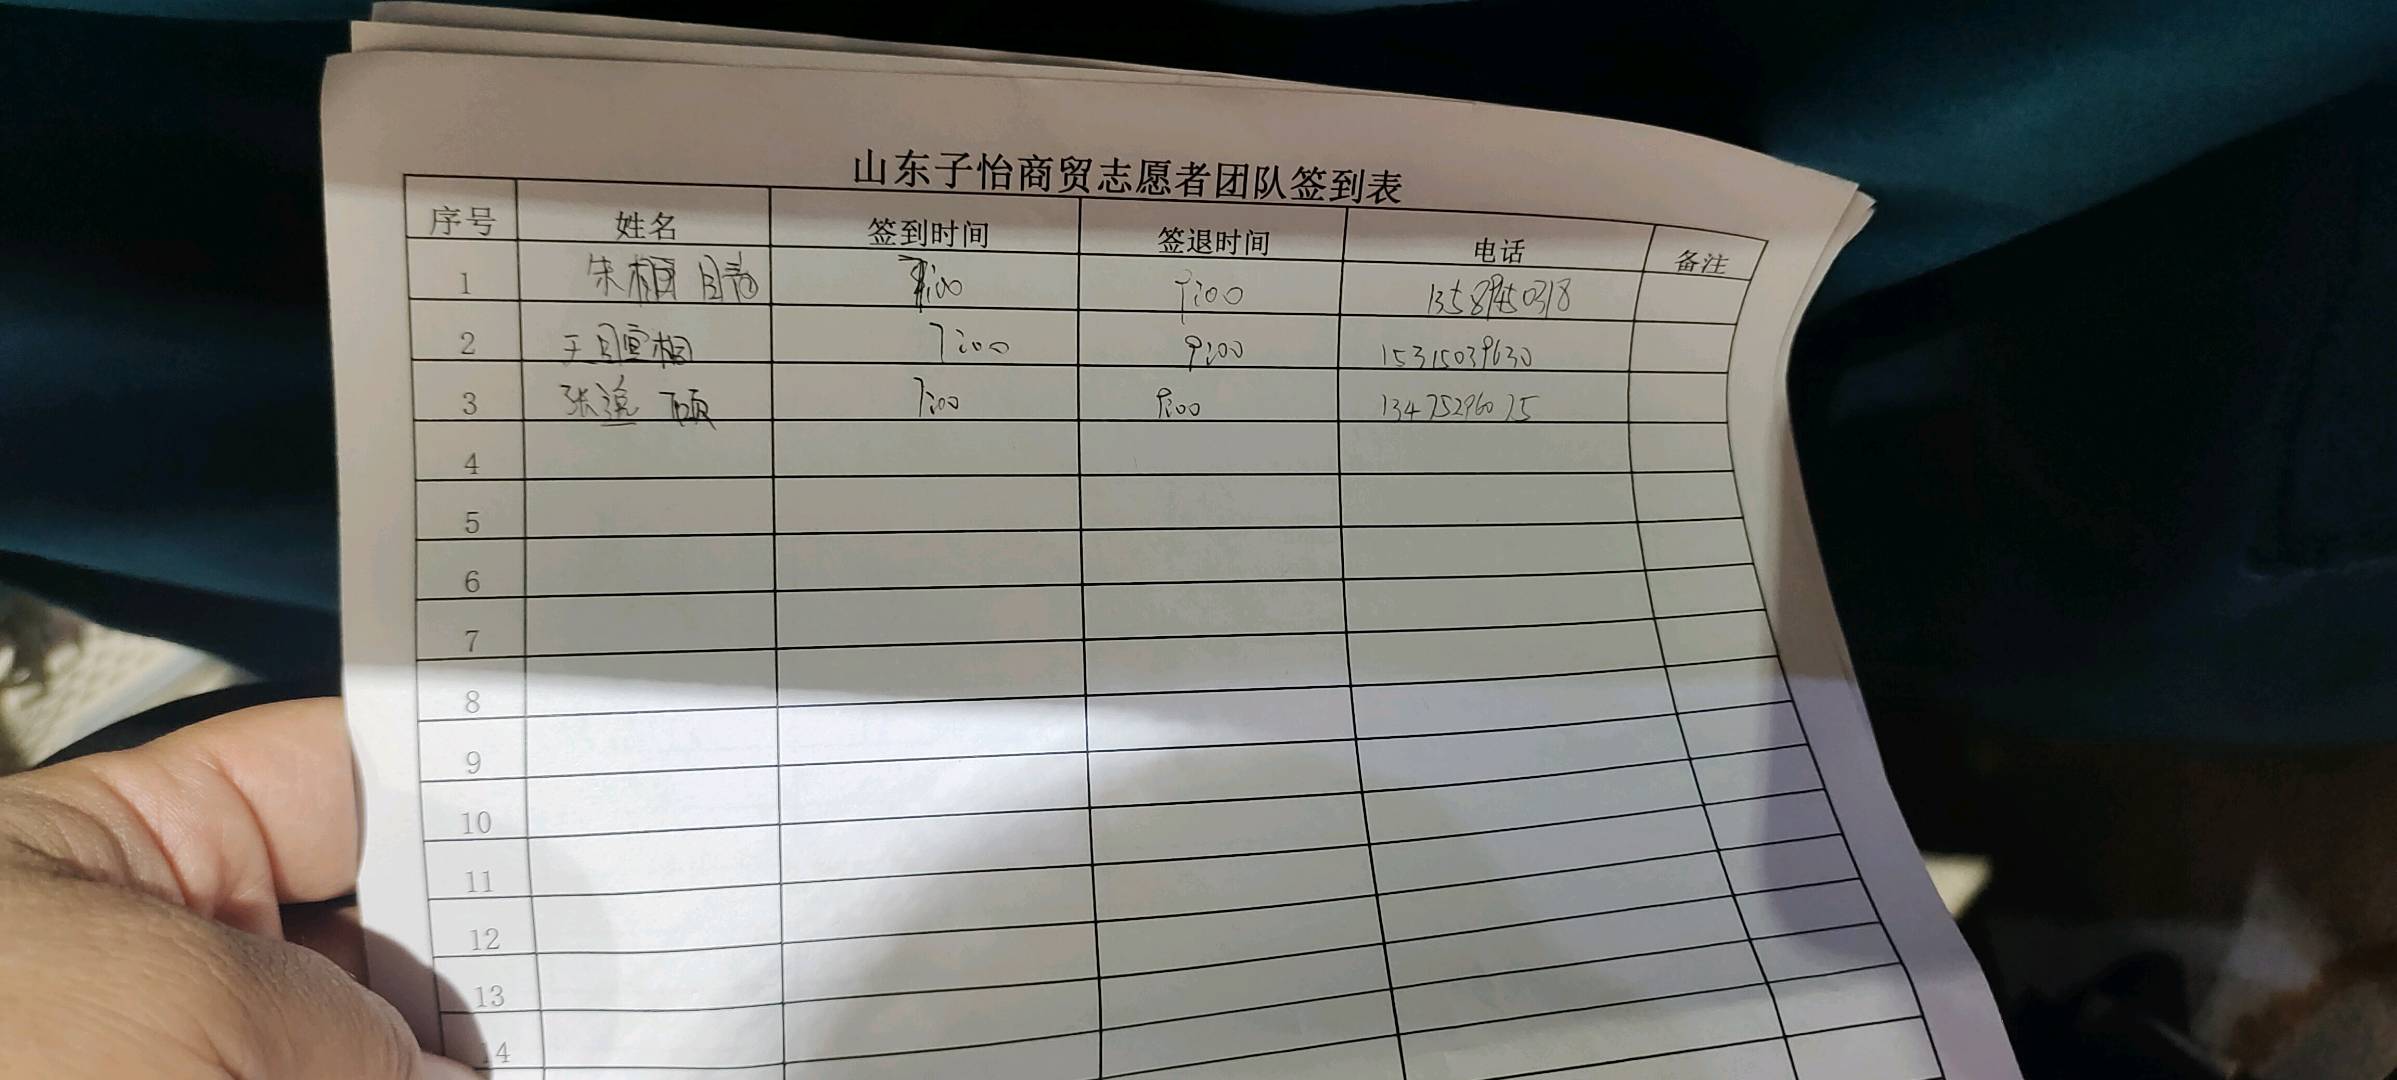 山东子怡商贸志愿者团队签到表
序号 姓名 签到时间 签退时间 电话 备注
1 朱 7:00 9:00 13589450318
2 王 7:00 9:00 15315039630
3 张 硕 7:00 9:00 13475296075
4
5
6
7
8
9
10
11
12
13
14